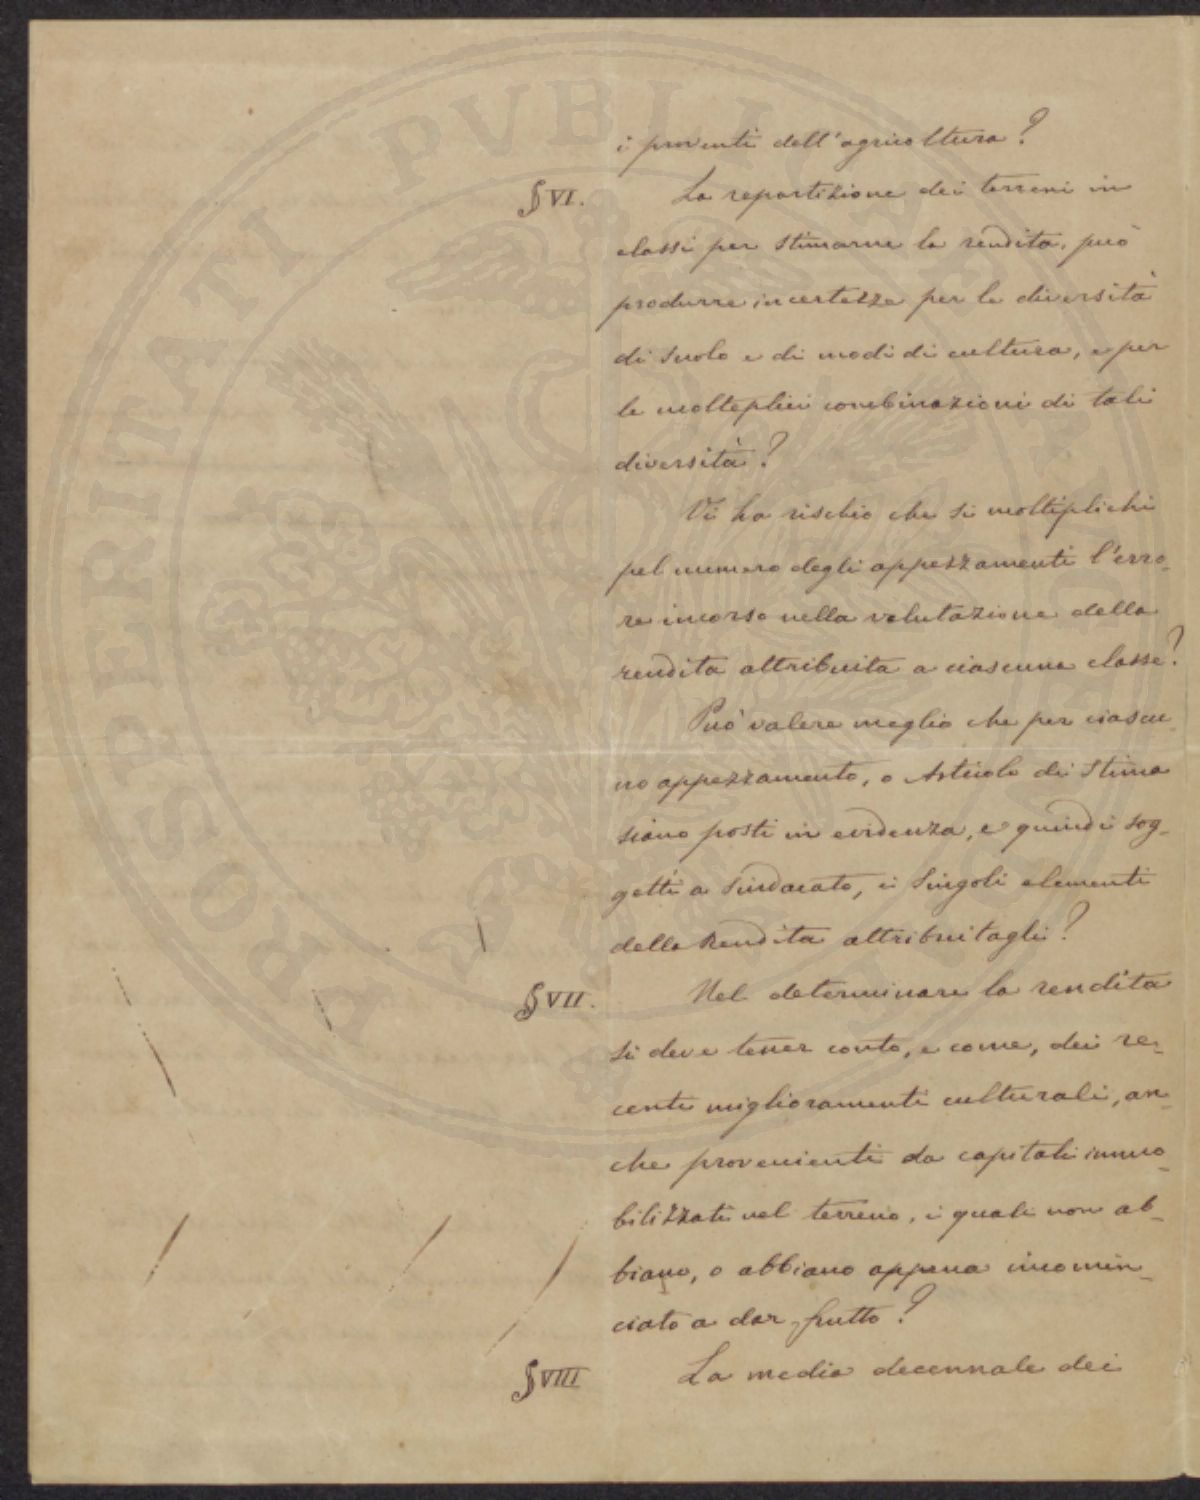 i proventi dell'agricoltura?
§ VI. La repartizione dei terreni in
classi per stimarne la rendita, può
produrre incertezze per le diversità
di suolo e di modi di cultura, e per
le molteplici combinazioni di tali
diversità?
Vi ha rischio che si moltiplichi
pel numero degli appezzamenti l'erro-
re incorso nella valutazione della
rendita attribuita a ciascuna classe?
Può valere meglio che per ciascu-
no appezzamento, o Articolo di Stima
siano posti in evidenza, e quindi sog-
getti a Sindacato, i Singoli elementi
della Rendita attribuitagli?
§ VII. Nel determinare la rendita
si deve tener conto, e come, dei re-
centi miglioramenti culturali, an-
che provenienti da capitali immo-
bilizzati nel terreno, i quali non ab-
biano, o abbiano appena incomin-
ciato a dar frutto?
§ VIII La media decennale dei
PROSPERITATI PVBLICAE